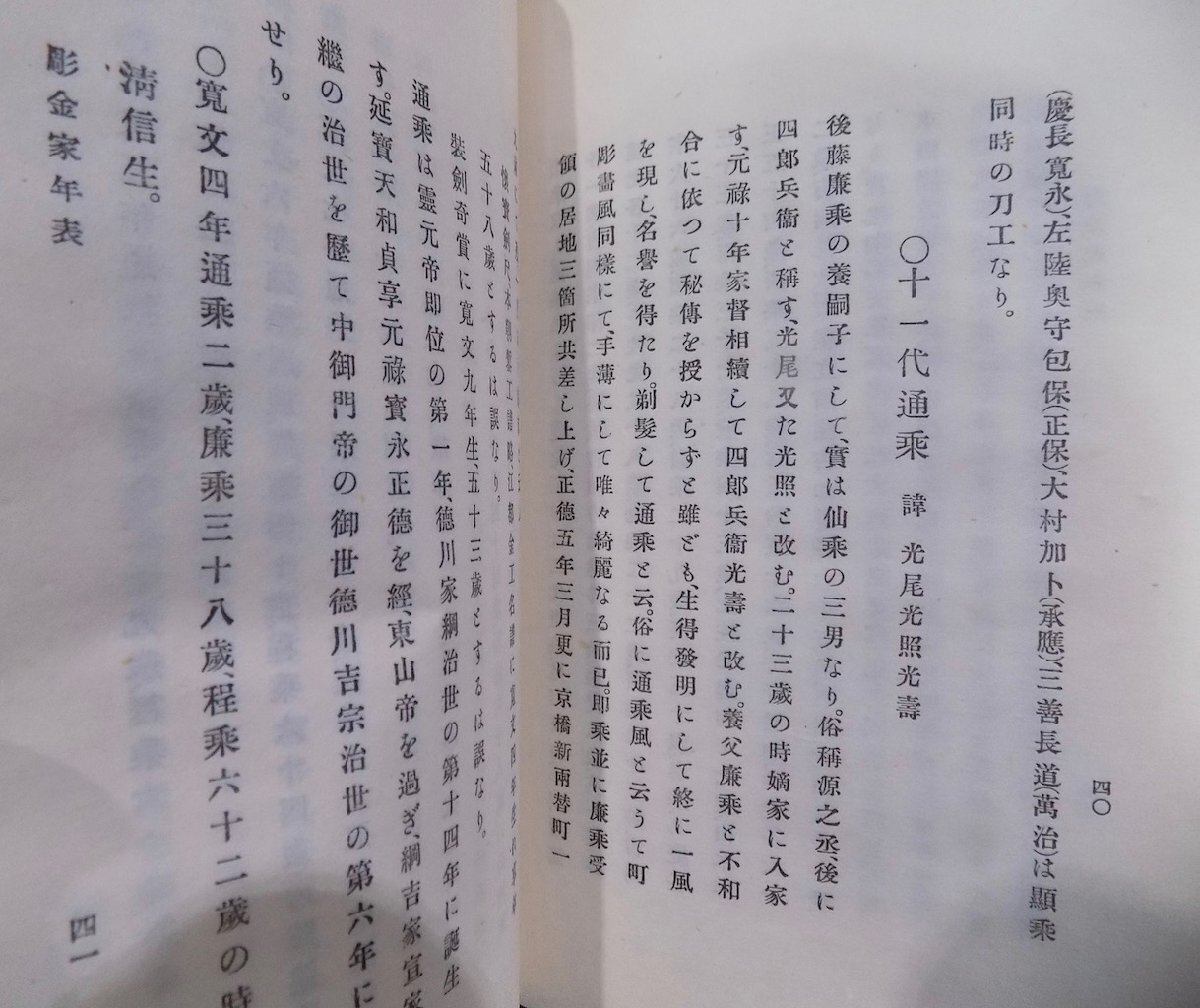 (慶長寬永)、左陸奥守包保(正保)、大村加卜(承應)、三善長道(萬治)は顯乘
同時の刀工なり。
〇十一代通乘 諱 光尾光照光壽
後藤廉乘の養嗣子にして、實は仙乘の三男なり。俗稱源之丞、後に
四郎兵衞と稱す、光尾又た光照と改む。二十三歲の時嫡家に入家
す、元祿十年家督相續して四郎兵衞光壽と改む。養父廉乘と不和
合に依つて秘傳を授からずと雖ども、生得發明にして終に一風
を現し、名譽を得たり。剃髮して通乘と云。俗に通乘風と云うて町
彫畵風同樣にて、手薄にして唯々綺麗なる而已。卽乘並に廉乘受
領の居地三箇所共差し上げ、正德五年三月更に京橋新兩替町一
四〇
五十八歲とするは誤なり。
裝劍奇賞に寬文九年生、五十三歲とするは誤なり。
通乘は靈元帝卽位の第一年、德川家綱治世の第十四年に誕生
す。延寶天和貞享元祿寶永正德を經、東山帝を過ぎ、綱吉家宣家
繼の治世を歷て中御門帝の御世德川吉宗治世の第六年に
せり。
〇寬文四年通乘二歲、廉乘三十八歲、程乘六十二歲の時
淸信生。
彫金家年表
四一